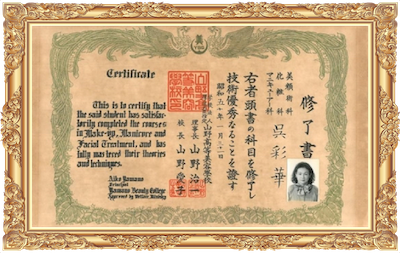 Certificate
This is to certify that
the said student has satisfac-
torily completed the courses
in Make-up, Manicure and
Facial Treatment, and has
fully mastered their theories
and techniques.
Aiko Yamano
Principal
Yamano Beauty College
修了書
美顔術科
化粧科
マニキュア科
呉彩華
右者頭書の科目を修了し
技術優秀なることを證す
昭和五十年一月三十一
山野高等美容學校
理事長 山野治一
校長 山野愛子